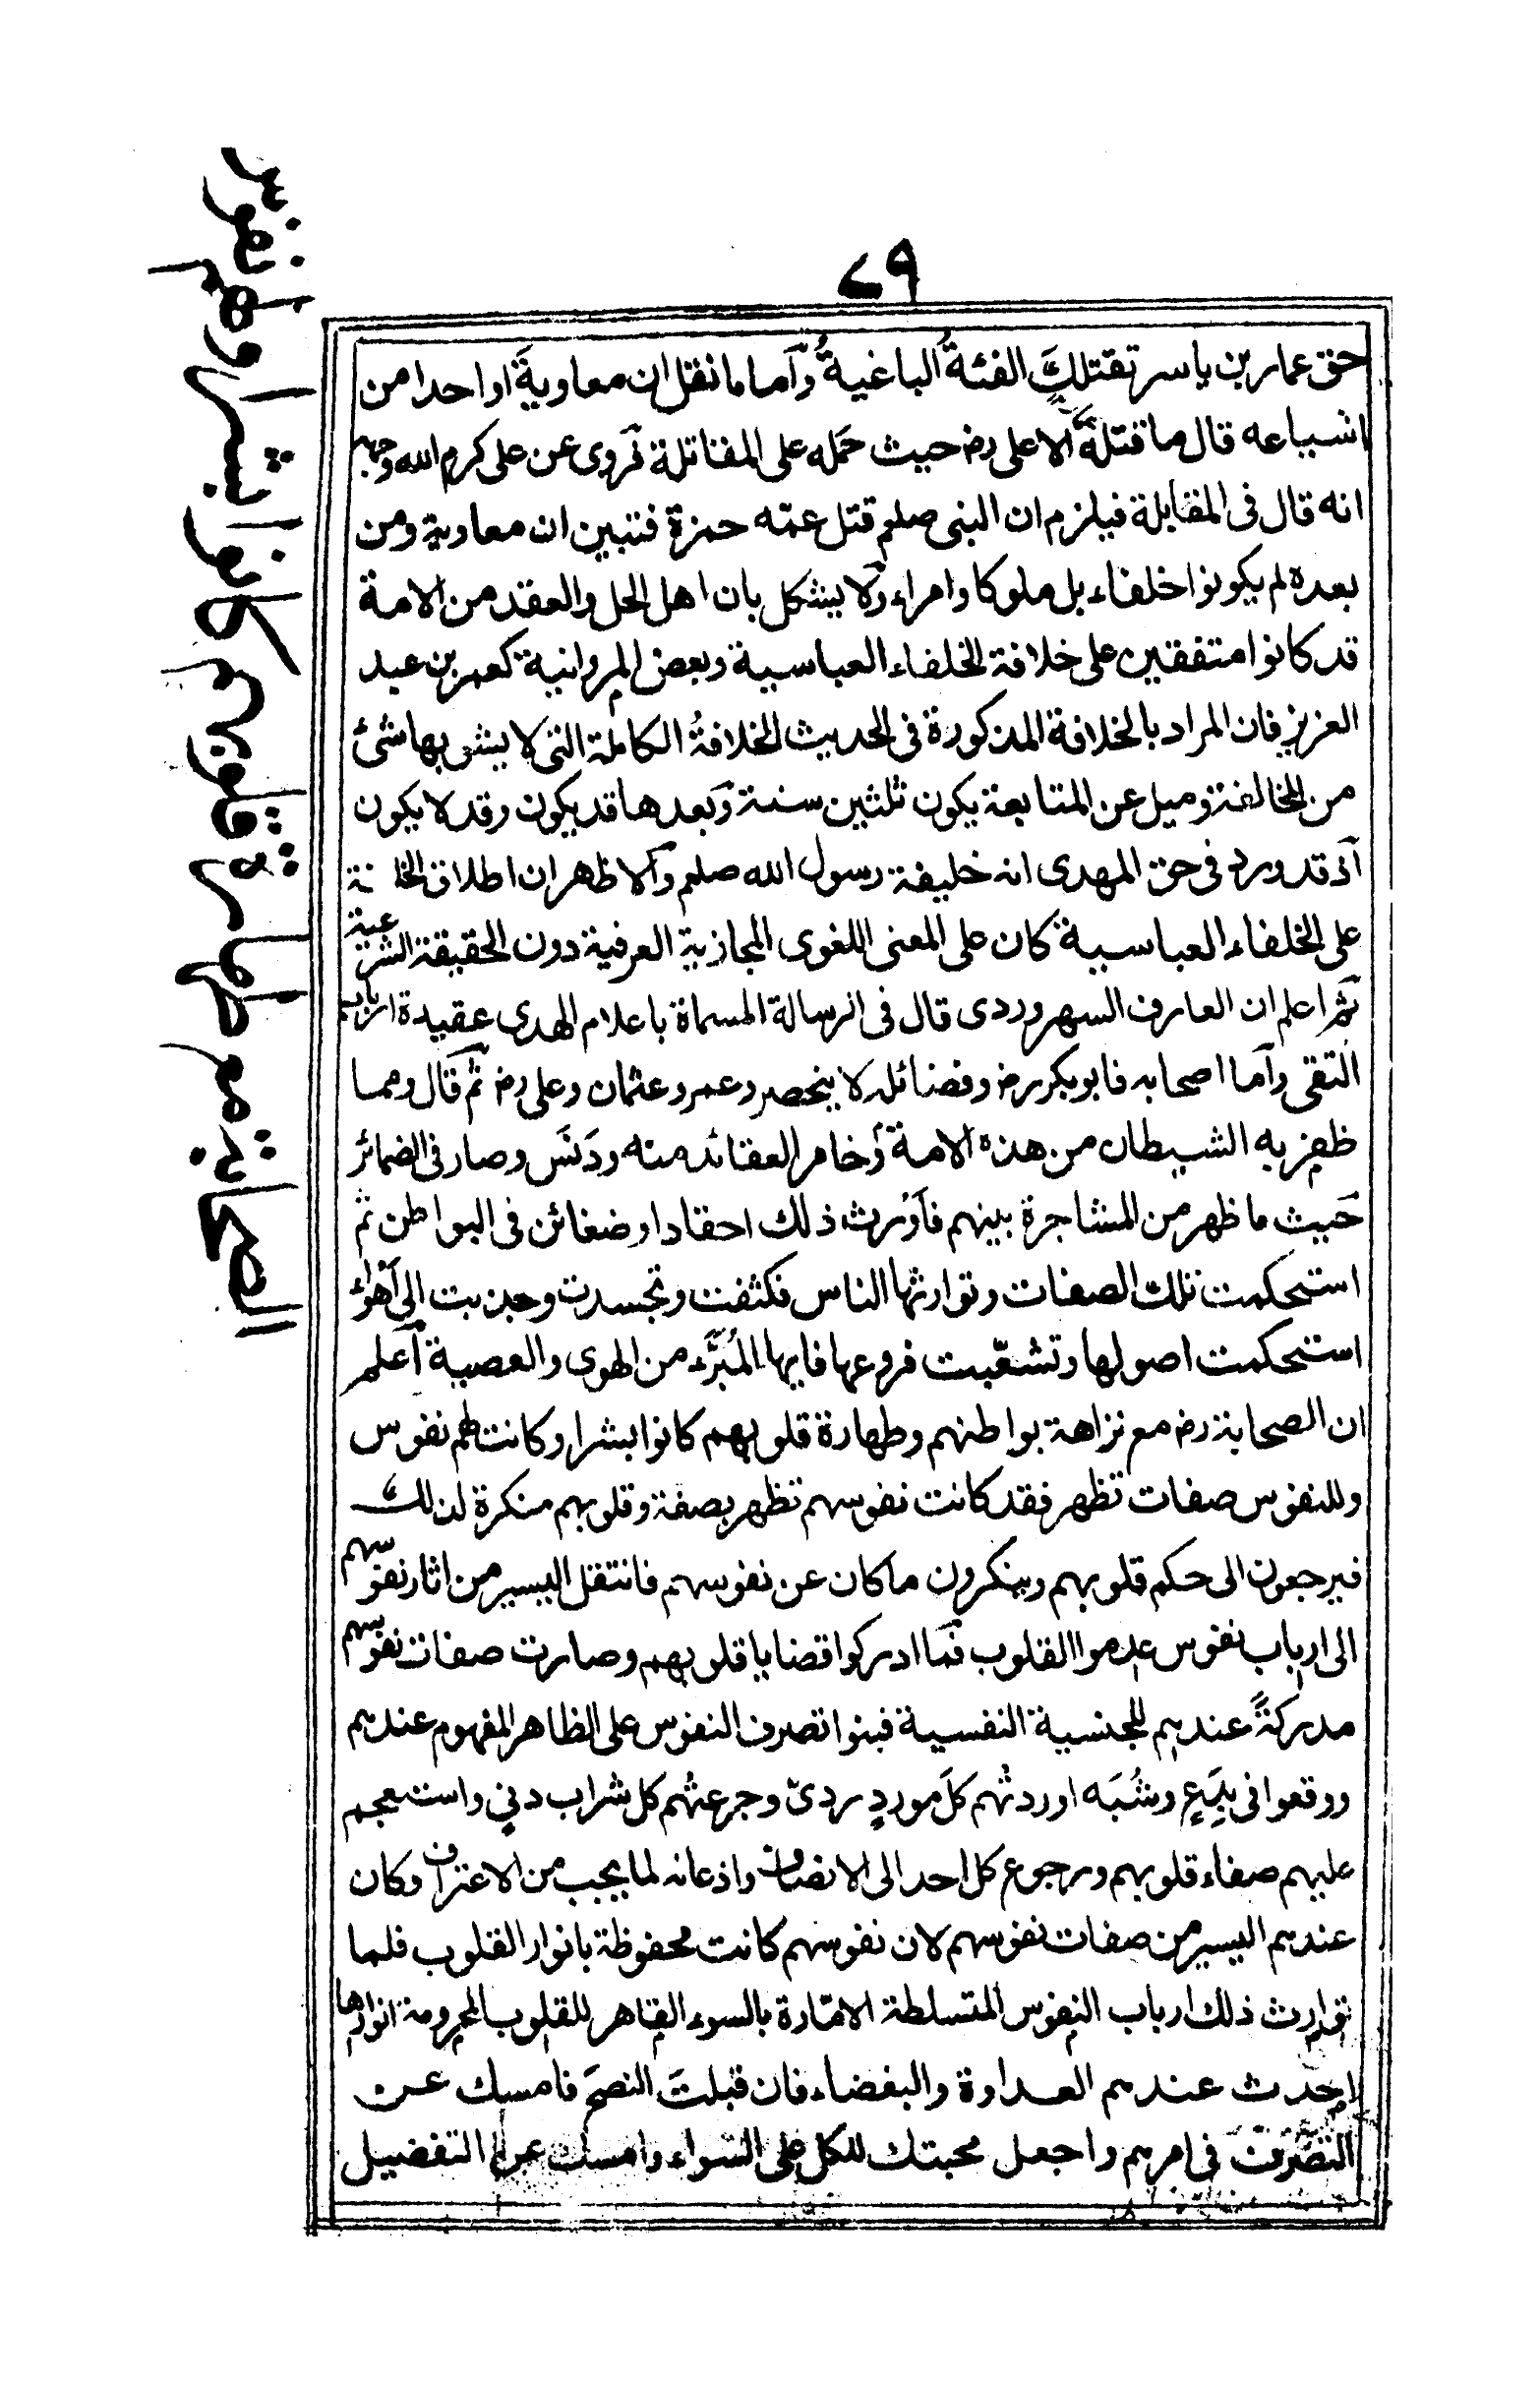 ٧٩
حق عمار بن ياسر تقتلك الفئةُ الباغيةُ وأما ما نقل ان معاويةَ او احدا من
اشياعه قال ما قتله الا على رض حيث حمَله على المقاتلة فروى عن على كرم الله وجهه
انه قال فى المقابلة فيلزم ان النبى صلعم قتل عمّه حمزة فتبين ان معاوية ومن
بعده لم يكونوا خلفاء بل ملوكا وامراء ولا يشكل بان اهل الحل والعقد من الامة
قد كانوا متفقين على خلافة الخلفاء العباسية وبعض المروانية كعمر بن عبد
العزيز فان المراد بالخلافة المذكورة فى الحديث الخلافةُ الكاملة التى لا يشوبها شئ
من المخالفة وميل عن المتابعة يكون ثلثين سنة وبعدها قد يكون وقد لا يكون
اذ قد ورد فى حق المهدى انه خليفة رسول الله صلعم والاظهر ان اطلاق الخلافة
على الخلفاء العباسية كان على المعنى اللغوى المجازية العرفية دون الحقيقة الشرعية
ثم اعلم ان العارف السهروردى قال فى الرسالة المسماة باعلام الهدى عقيدة ارباب
التقى وأما اصحابه فابوبكر رض وفضائله لا ينحصر وعمر وعثمان وعلى رض ثم قال ومما
ظفر به الشيطان من هذه الامة وخامر العقائد منه ودَنَس وصار فى الضمائر
خبيث ما ظهر من المشاجرة بينهم فأورث ذلك احقادا وضغائن فى البواطن ثم
استحكمت تلك الصفات وتوارثها الناس فكثفت وتجسدت وجذبت الى أهواء
استحكمت اصولها وتشعّبت فروعها فايها المُبَرَّء من الهوى والعصبية أعلم
ان الصحابة رض مع نزاهة بواطنهم وطهارة قلوبهم كانوا بشرا وكانت لهم نفوس
وللنفوس صفات تظهر فقد كانت نفوسهم تظهر بصفة وقلوبهم منكرة لذلك
فيرجعون الى حكم قلوبهم وينكرون ما كان عن نفوسهم فانتقل اليسير من اثار نفوسهم
الى ارباب نفوس عدموا القلوب فما ادركوا قضايا قلوبهم وصارت صفات نفوسهم
مدركةً عندهم للجنسية النفسية فبنوا تصرف النفوس على الظاهر المفهوم عندهم
ووقعوا فى بِدَعٍ وشُبَه اوردتْهم كلَ موردٍ ردىّ وجرعتْهم كل شراب دنىٍ واستعجم
عليهم صفاء قلوبهم ورجوع كل احد الى الانصاف واذعانه لما يجب من الاعتراف وكان
عندهم اليسير من صفات نفوسهم لان نفوسهم كانت محفوظة بانوار القلوب فلما
توارث ذلك ارباب النفوس المتسلطة الامّارة بالسوء القاهر للقلوب المحرومة انوارها
احدث عندهم العداوة والبغضاء فان قبلتَ النصحَ فامسك عن
التصرف فى امرهم واجعل محبتك للكل على السواء وامسك عن التفضيل
الصحابة مع طهارة قلوبهم كانوا بشرا ولهم نفوس